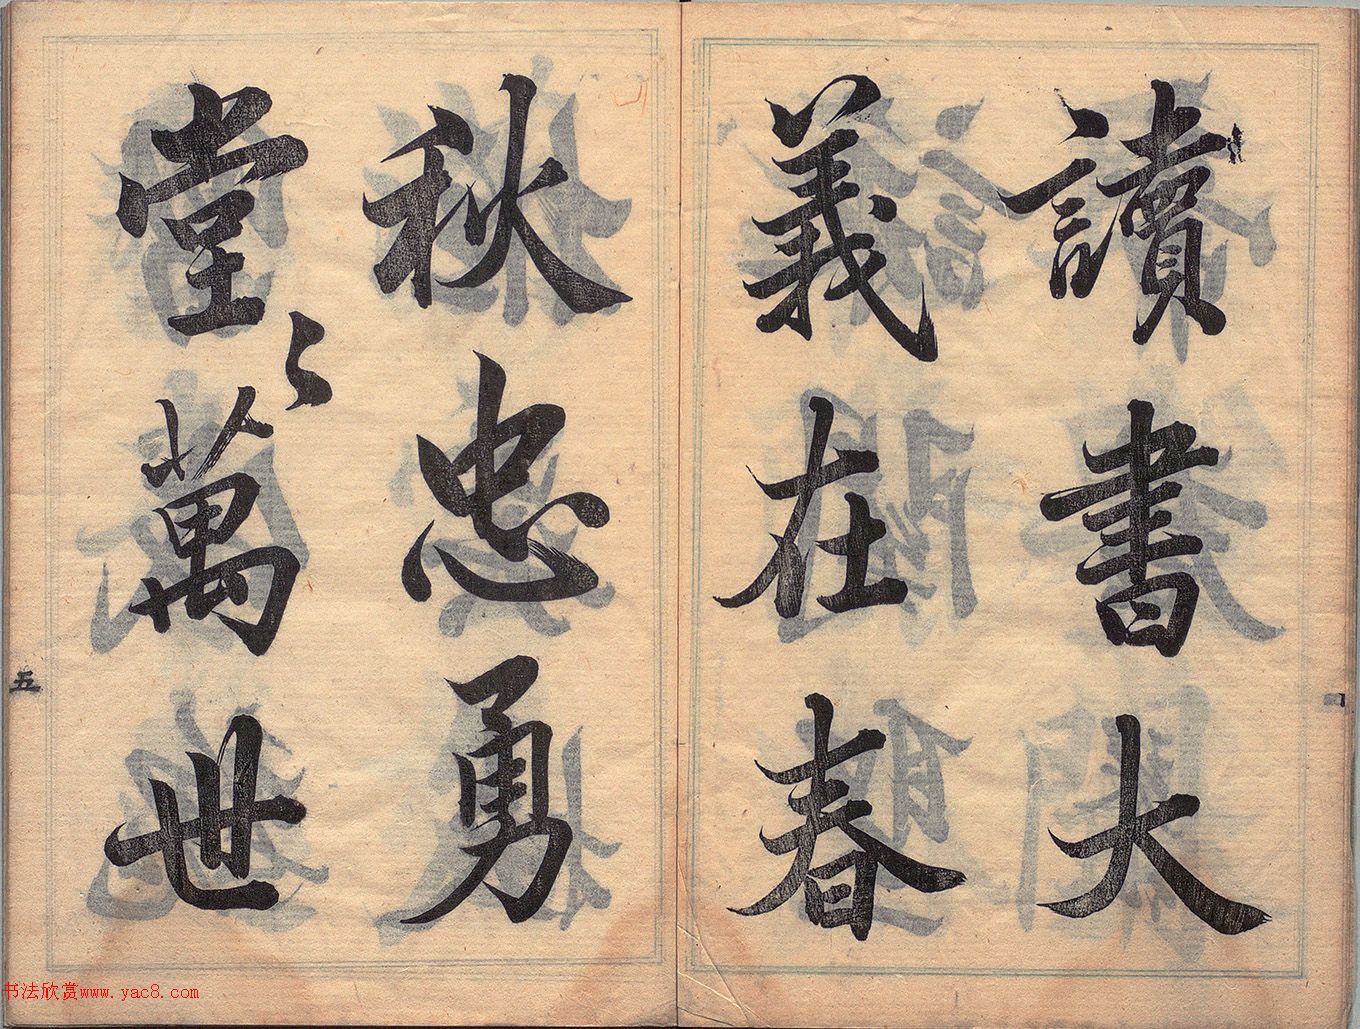 讀書大
義在春
秋忠勇
堂〻萬世
五
书法欣赏www.yac8.com